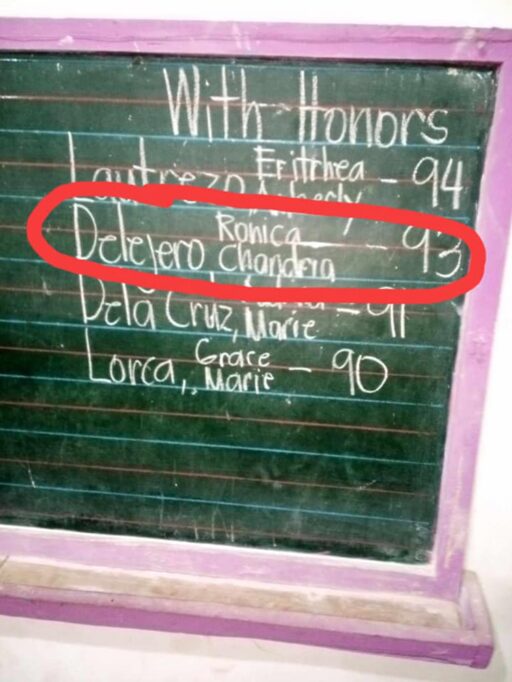 With Honors
Lautrezo, Eritrhea - 94
Delejero Ronica Chandria - 93
Dela Cruz, Marie - 91
Lorca, Grace Marie - 90